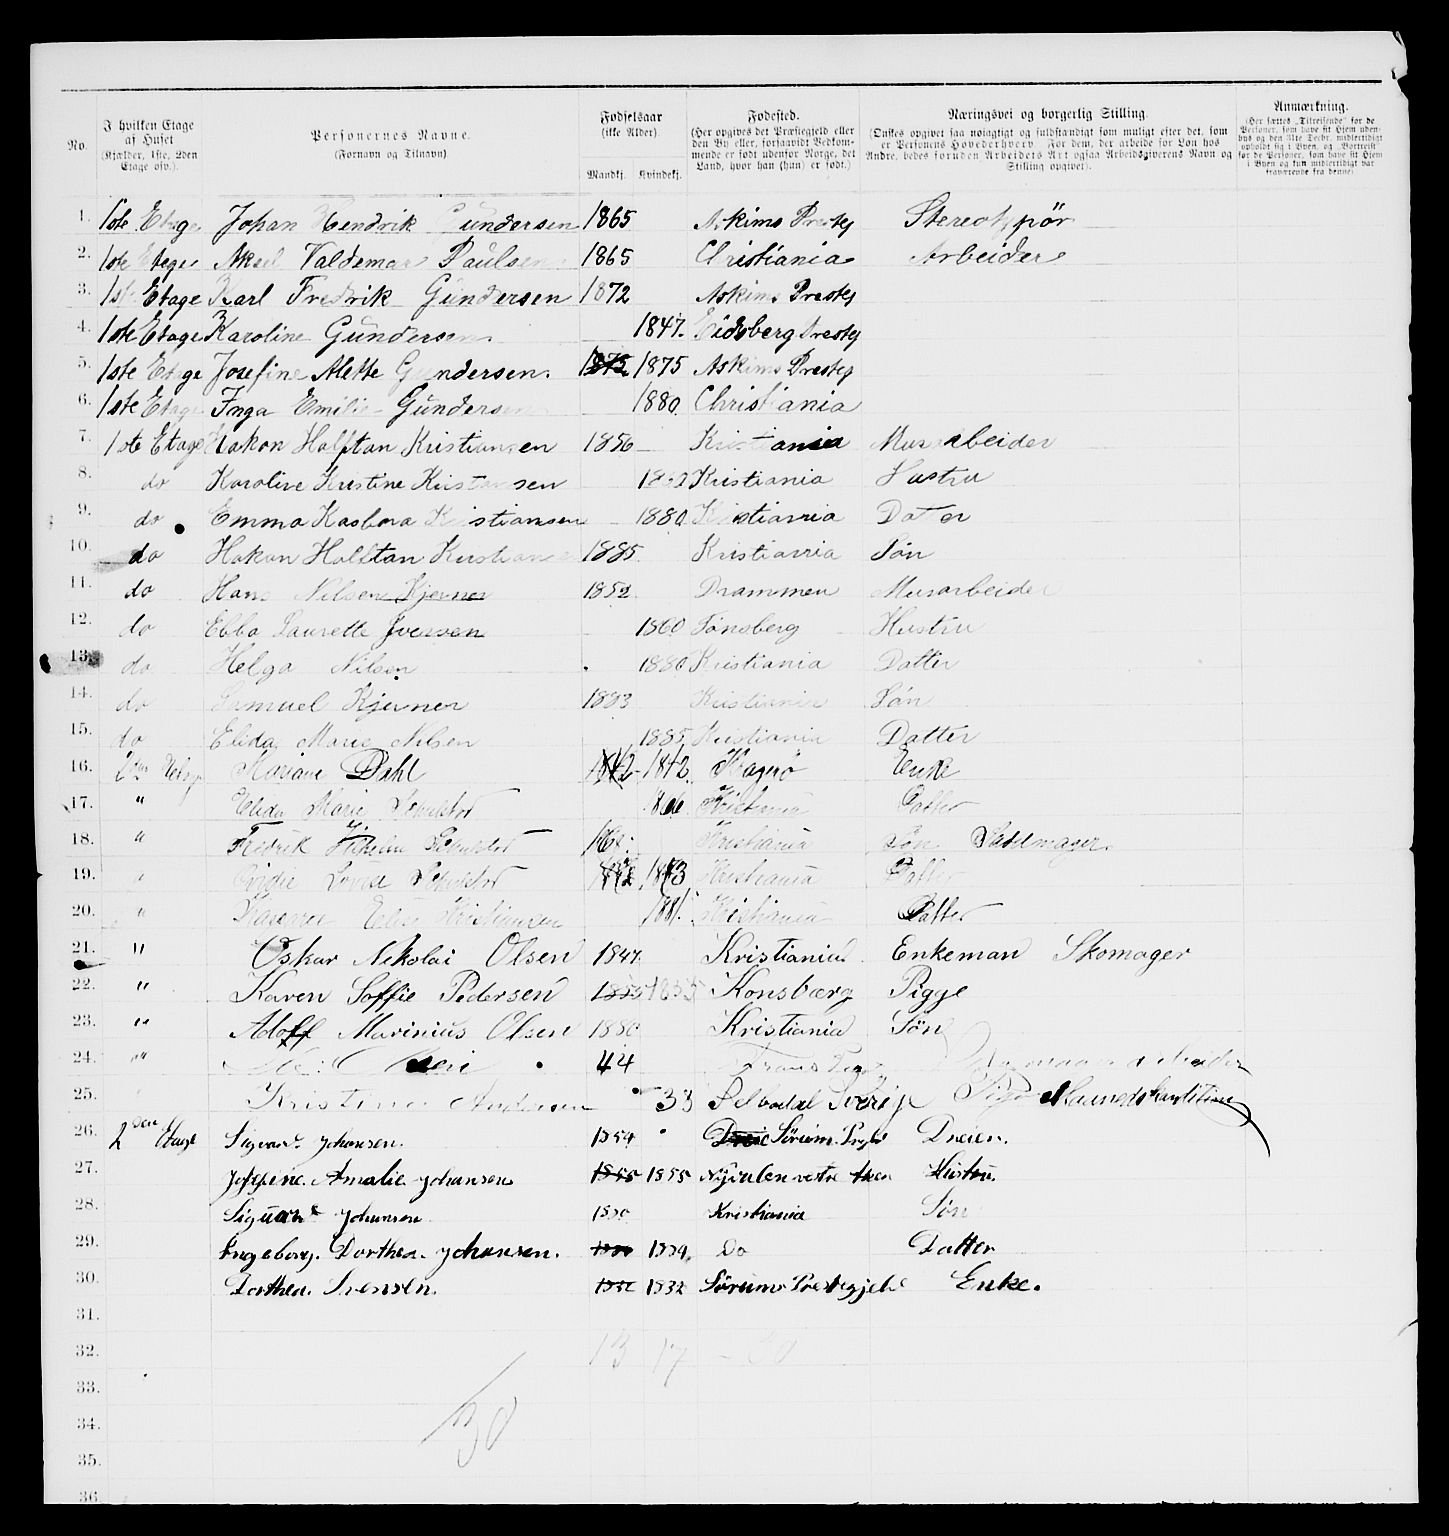 No.
I hvilken Etage af Huset (Kjælder, 1ste, 2den Etage osv.).
Personernes Navne. (Fornavn og Tilnavn)
Fødselsaar (ikke Alder). Mandkj. Kvindekj.
Fødested. (Her opgives det Præstegjeld eller den By eller, forsaavidt Vedkommende er født udenfor Norge, det Land, hvor han (hun) er født.)
Næringsvei og borgerlig Stilling. (Ønskes opgivet saa nøiagtigt og fuldstændigt som muligt efter det, som er Personens Hovederhverv. For dem, der arbeide for Løn hos Andre, bedes foruden Arbeidets Art ogsaa Arbeidsgiverens Navn og Stilling opgivet.)
Anmærkning. (Her sættes „Tilreisende" for de Personer, som have sit Hjem udenbys og den 31te Decbr. midlertidigt opholdt sig i Byen, og „Bortreist" for de Personer, som have sit Hjem i Byen og kun midlertidigt var fraværende fra denne)
1. 1ste Etage Johan Hendrik Gundersen 1865 Askims Presteg Stereotypör
2. 1ste Etage Aksel Valdemar Paulsen 1865 Christiania Arbeider
3. 1ste Etage Karl Fredrik Gundersen 1872 Askims Presteg
4. 1ste Etage Karoline Gundersen 1847. Eidsberg Presteg
5. 1ste Etage Josefine Alette Gundersen. 1875 1875 Askims Presteg
6. 1ste Etage Inga Emilie Gundersen 1880 Christiania
7. 1ste Etage Hakon Halftan Kristiansen 1856 Kristiania Murarbeider
8. do Karoline Kristine Kristiansen Kristiania Hustru
9. do Emma Kasbara Kristiansen 1880 Kristiania Datter
10. do Hakon Halftan Kristianse 1885 Kristiania Søn
11. do Hans Nilsen Kjerner 1852 Drammen Murarbeider
12. do Ebba Laurette Iversen 1860 Tønsberg Hustru
13. do Helga Nilsen 1880 Kristiania Datter
14. do Samuel Kjerner 1883 Kristiania Søn
15. do Elida Marie Nilsen 1885 Kristiania Datter
16. Etage Mariane Dahl 1842 1842 Kragerö Enke
17. " Elida Marie 1866 Kristiania Datter
18. " Fredrik Vilhelm Kristiania Søn Sadelmager.
19. " Lovise 1873 Kristiania Datter
20. " Elise Kristiansen 1881. Kristiania Datter
21. " Oskar Nikolai Olsen 1847 Kristiania Enkeman Skomager
22. " Karen Soffie Pedersen 1855 1855 Konsbærg Pigge
23. " Adolf Marinius Olsen 1880 Kristiania Søn
24. " 44
25. Kristine Andersen 33
26. 2den Etage Sigvart Johansen. 1854 Sørum Dreier.
27. Josefine Amalie Johansen 1855 1855 Hustru.
28. Sigvart Johansen 1880 Kristiania Søn
29. Ingeborg Dorthea Johansen. 1884 Do Datter
30. Dorthea Svensen. 1832 1832 Sørums Prestegjeld Enke.
31.
32. 13 17 – 30
33.
34. 30
35.
36